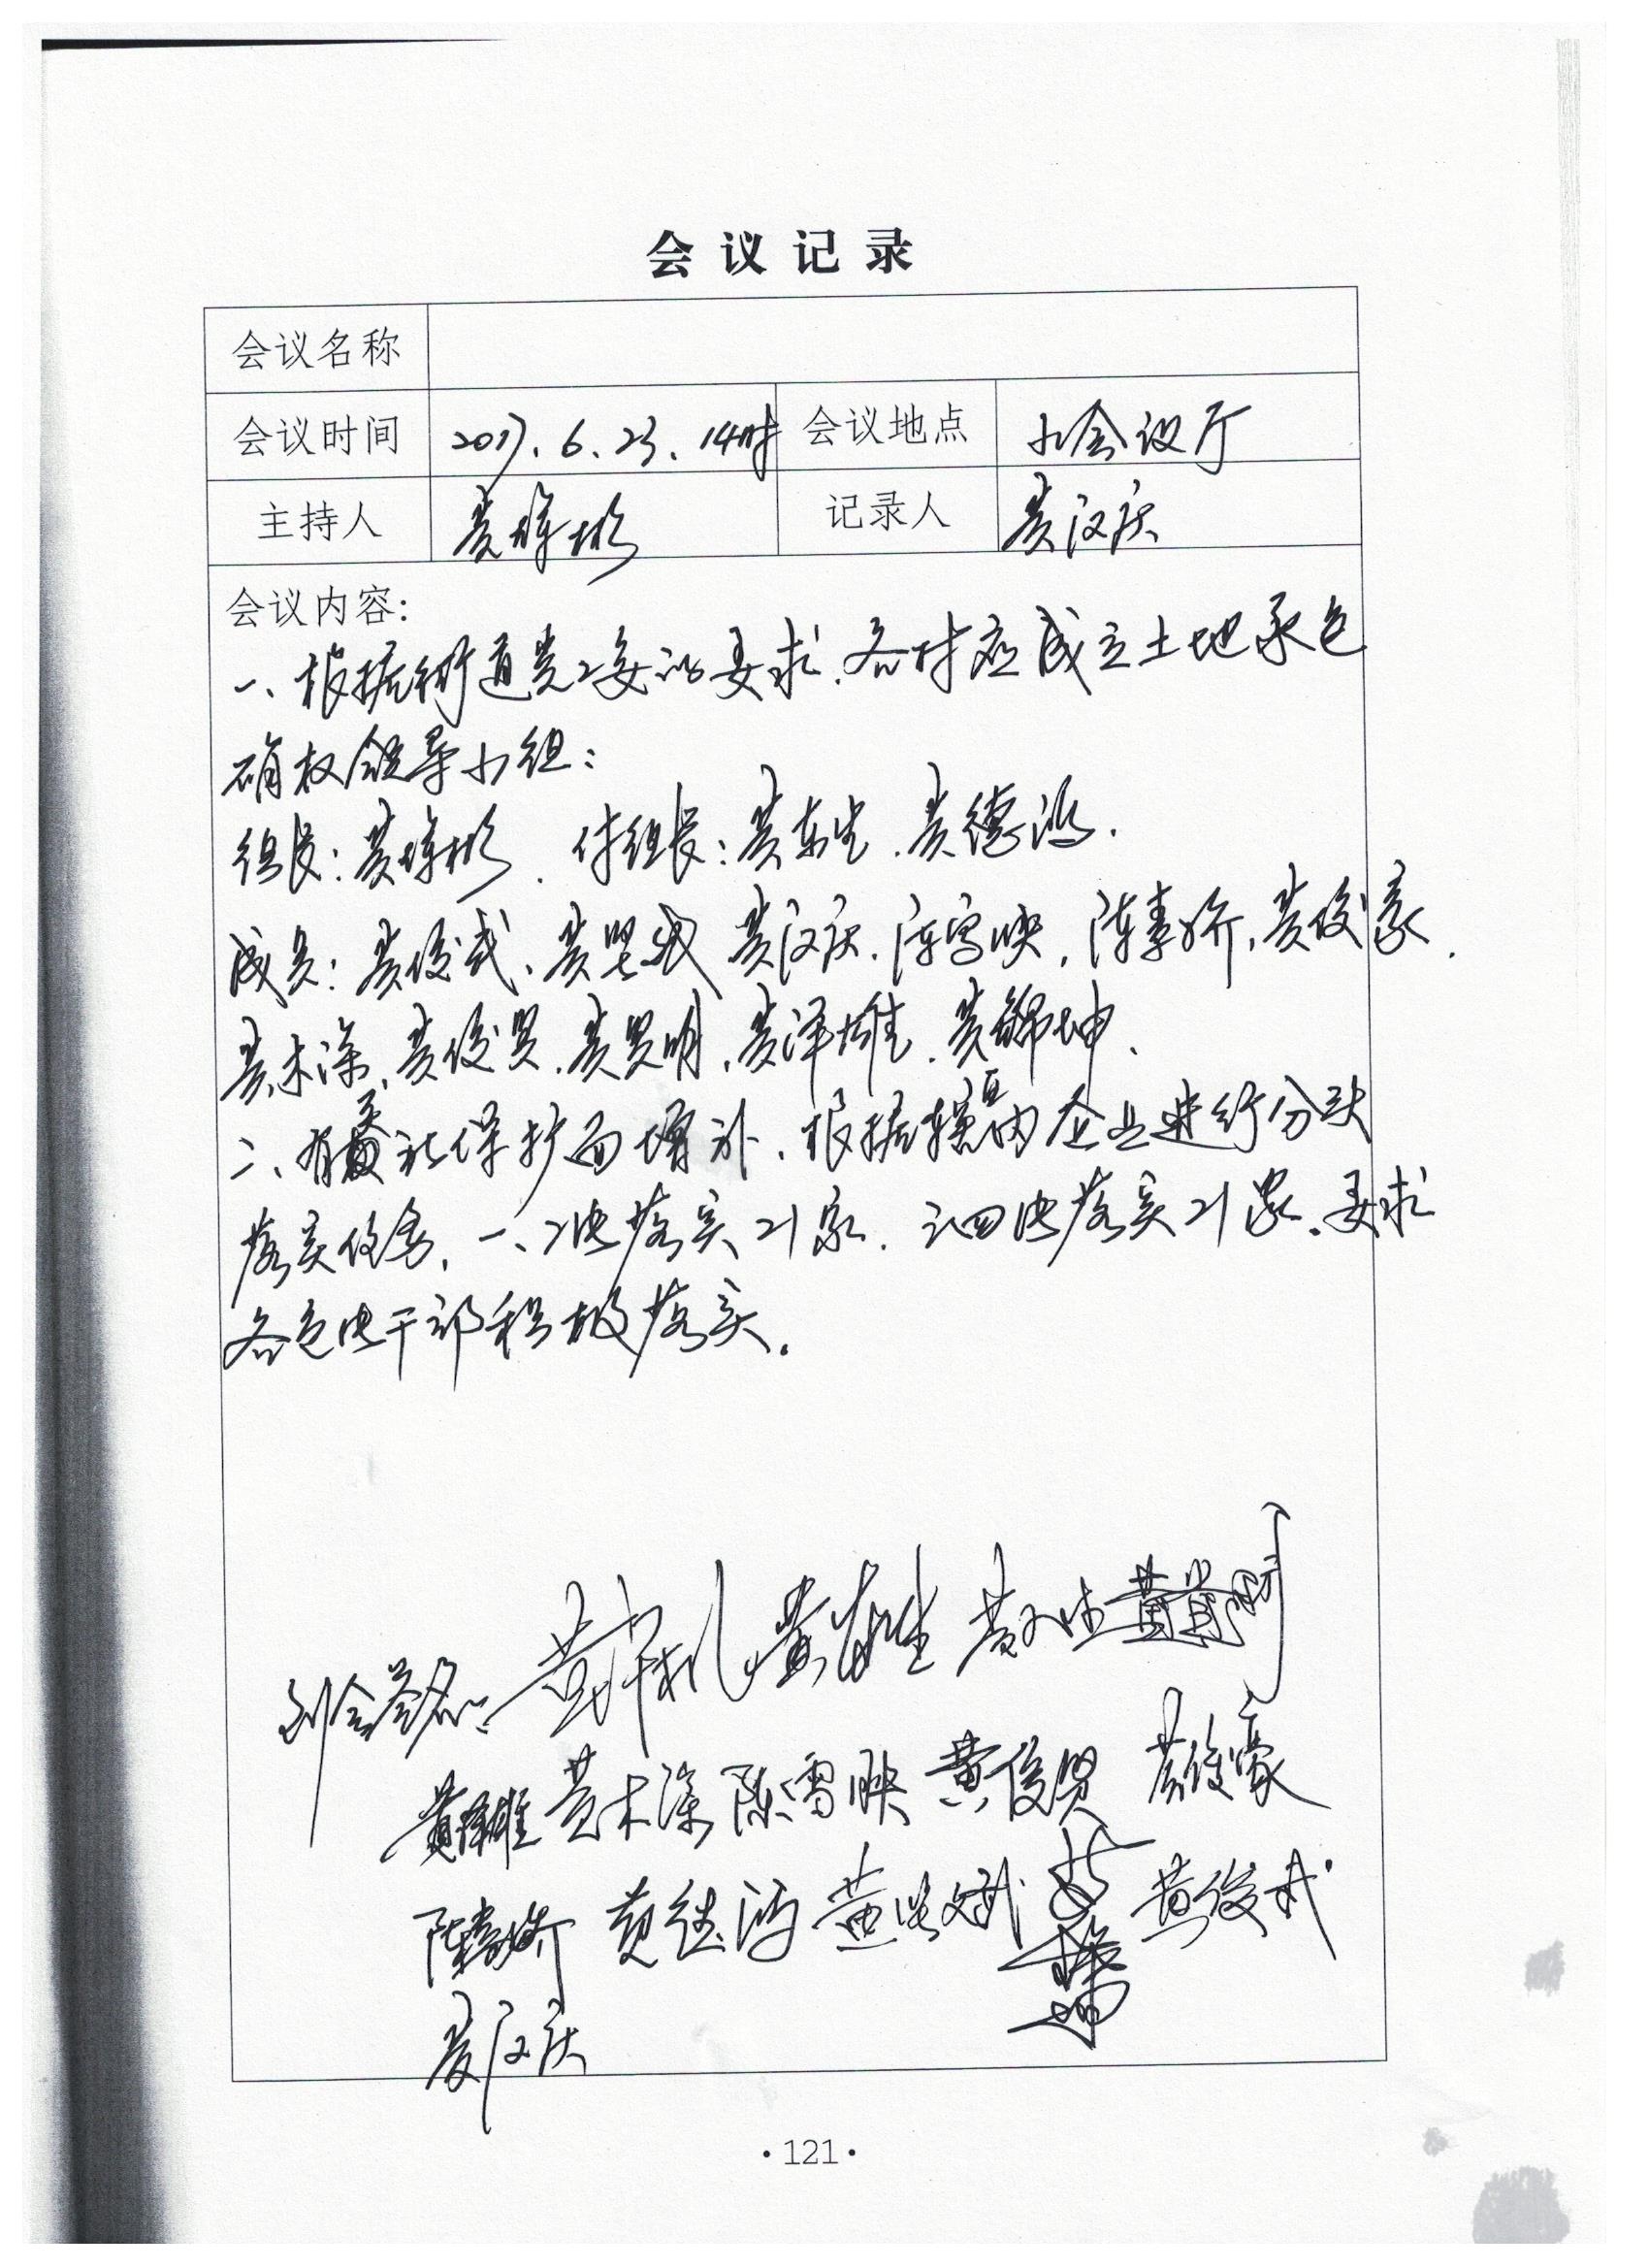 会议记录
会议名称
会议时间 2017.6.23.14时 会议地点 小会议厅
主持人 黄 彬 记录人 黄汉庆
会议内容:
一、根据街道党工委的要求.各村应成立土地承包
确权领导小组:
组长:黄 彬. 付组长:黄东生.黄德鸿.
成员:黄俊武、黄 黄汉庆.陈雪映,陈素娇,黄俊豪.
黄木深,黄俊贤.黄贤明,黄泽雄.黄锦坤.
二、有关社保扩面增补.根据辖区内企业进行分块
落实任务,一、二块落实21家. 三四块落实21家.要求
各包块干部积极落实.
到会签名:
黄泽雄 黄木深 陈雪映 黄俊贤 黄俊豪
陈素娇 黄德鸿 黄 斌 黄俊武
黄汉庆
·121·